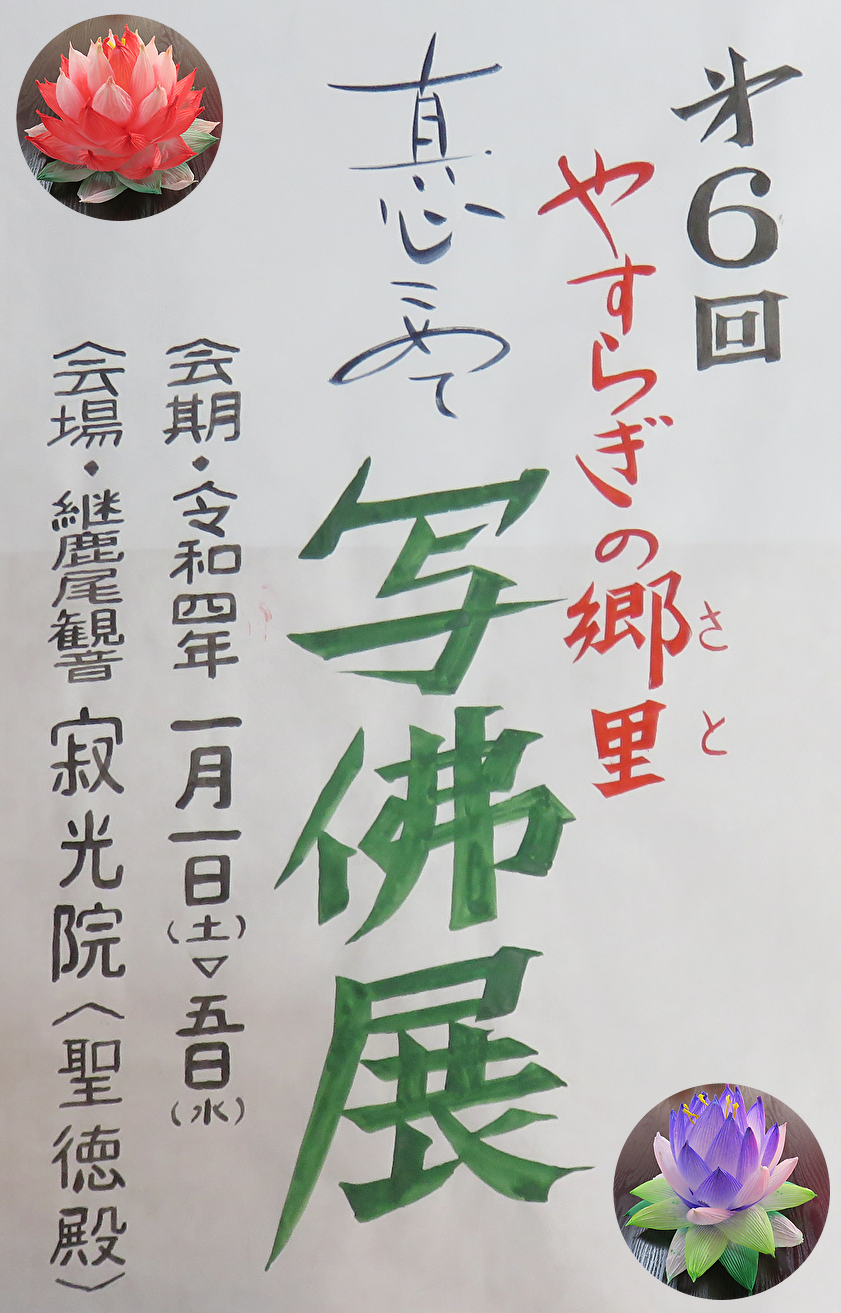 第6回
やすらぎの郷里
さと
真心こめて
写佛展
会期・令和四年 一月一日(土)▽五日(水)
会場・継鹿尾観音 寂光院〈聖徳殿〉